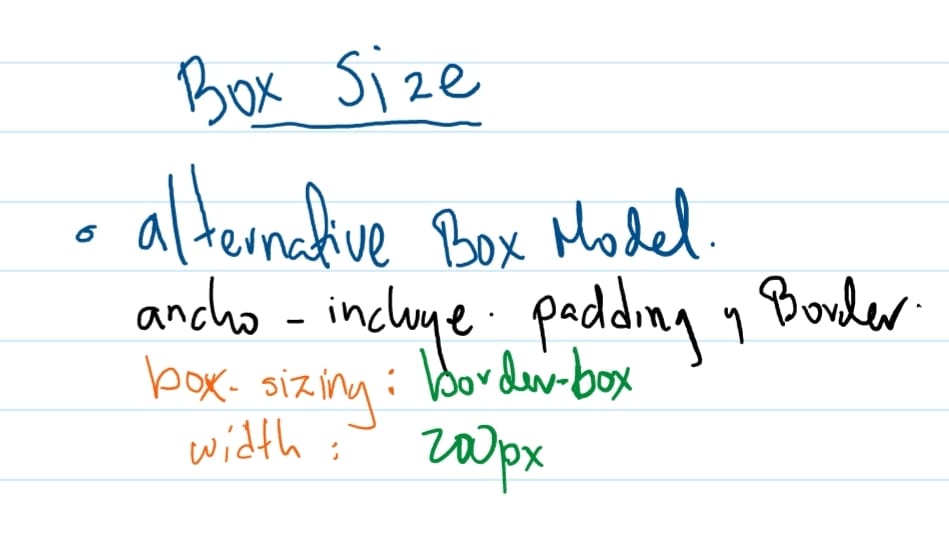 Box Size
• alternative Box Model.
ancho - incluye. padding y Border.
box-sizing: border-box
width: 200px